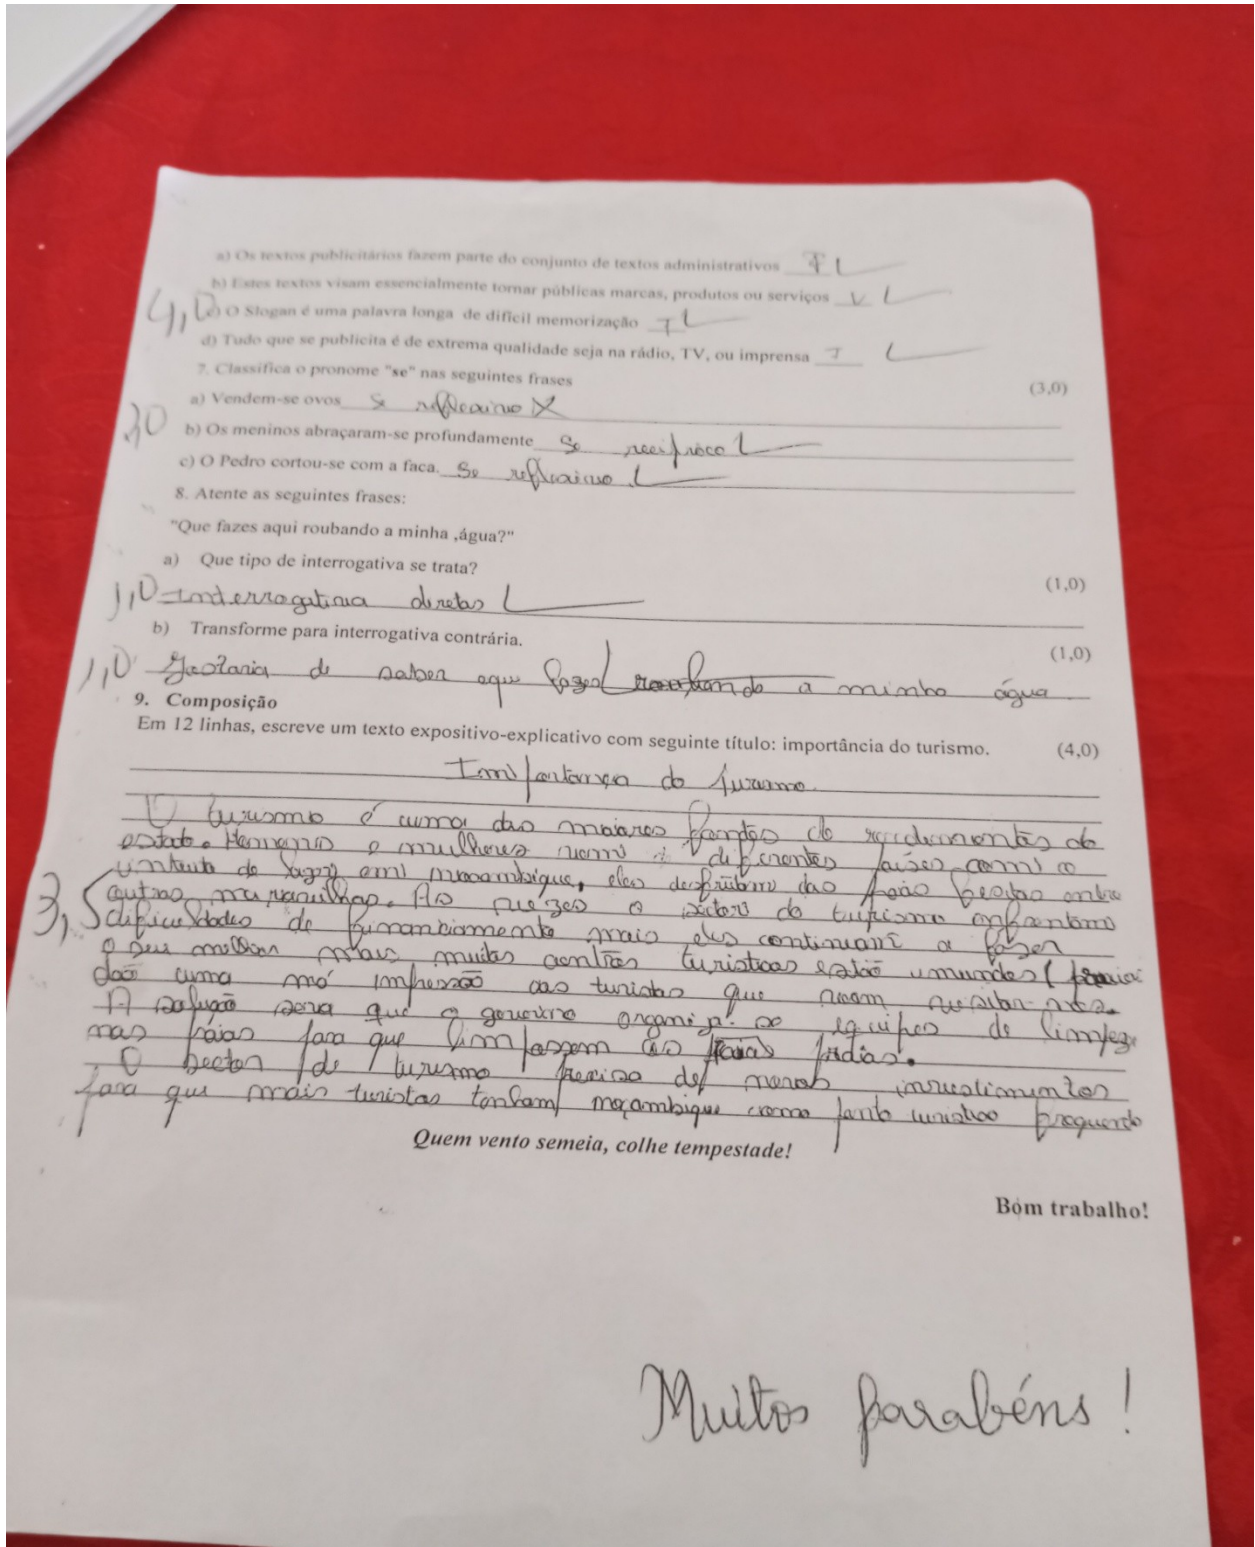 a) Os textos publicitários fazem parte do conjunto de textos administrativos F
b) Estes textos visam essencialmente tornar públicas marcas, produtos ou serviços V
4,0 c) O Slogan é uma palavra longa de difícil memorização F
d) Tudo que se publicita é de extrema qualidade seja na rádio, TV, ou imprensa F
7. Classifica o pronome "se" nas seguintes frases (3,0)
a) Vendem-se ovos Se reflexivo X
b) Os meninos abraçaram-se profundamente Se recíproco
c) O Pedro cortou-se com a faca. Se reflexivo
8. Atente as seguintes frases:
"Que fazes aqui roubando a minha ,água?"
a) Que tipo de interrogativa se trata? (1,0)
1,0 Interrogativa diretas
b) Transforme para interrogativa contrária. (1,0)
1,0 Gostaria de saber oque fazes a minha água
9. Composição
Em 12 linhas, escreve um texto expositivo-explicativo com seguinte título: importância do turismo. (4,0)
do turismo
O turismo é uma das maiores do
estado. e mulheres diferentes países com o
de lazer em mocambique, eles das entre
outras maravilhas. As vezes o do turismo enfrentam
dificuldades de mais eles continuam a fazer
o seu melhor mais, muitos turisticos estão
dão uma má impressão aos turistas que
A solução seria que o governo equipes de
nas praias para que limpassem as
O Sector de turismo precisa de investimentos
para que mais turistas tenham moçambique como turistico
3,5
Quem vento semeia, colhe tempestade!
Bom trabalho!
Muitos parabéns!